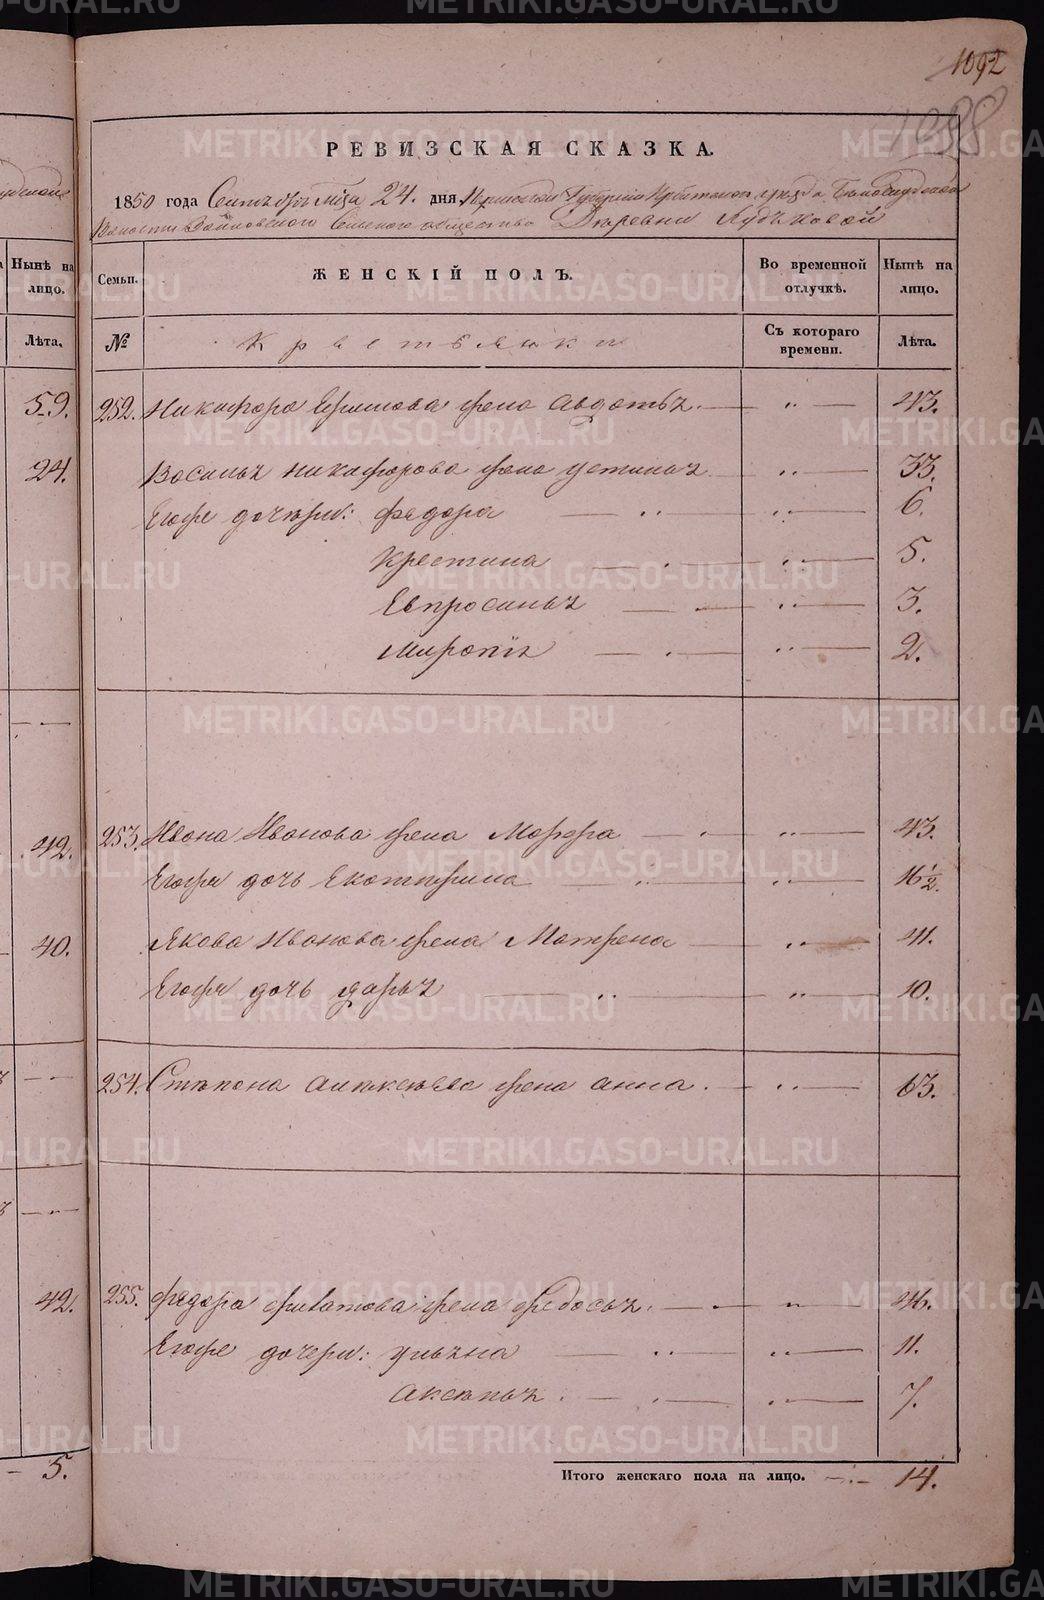 1092
1088
РЕВИЗСКАЯ СКАЗКА.
1850 года Сентября м‑ца 24. дня Пермской Губернии Ирбитскаго уезда Белослудской
Волости Зайковского Сельского общества Деревни Кудъковой
Нынѣ на лицо.
Семьи.
ЖЕНСКІЙ ПОЛЪ.
Во временной отлучкѣ.
Нынѣ на лицо.
Лѣта.
№
Крестьянки
Съ котораго времени.
Лѣта.
59. 252. Никифора Ефимова жена Авдотья 43.
24. Василья Никифорова жена Устинья 33.
Егоже дочери: Федора 6.
Крестина 5.
Евпросинья 3.
Миропія 2.
42. 253. Ивана Иванова жена Марфа 43.
Егоже дочь Екатерина 16½.
40. Якова Иванова жена Матрена 41.
Егоже дочь Дарья 10.
254. Степана Алексеева жена Анна 63.
42. 255. Федора Филатова жена Федосья 46.
Егоже дочери: Ульяна 11.
Аксенья 7.
5.
Итого женскаго пола на лицо. 14.
METRIKI.GASO-URAL.RU